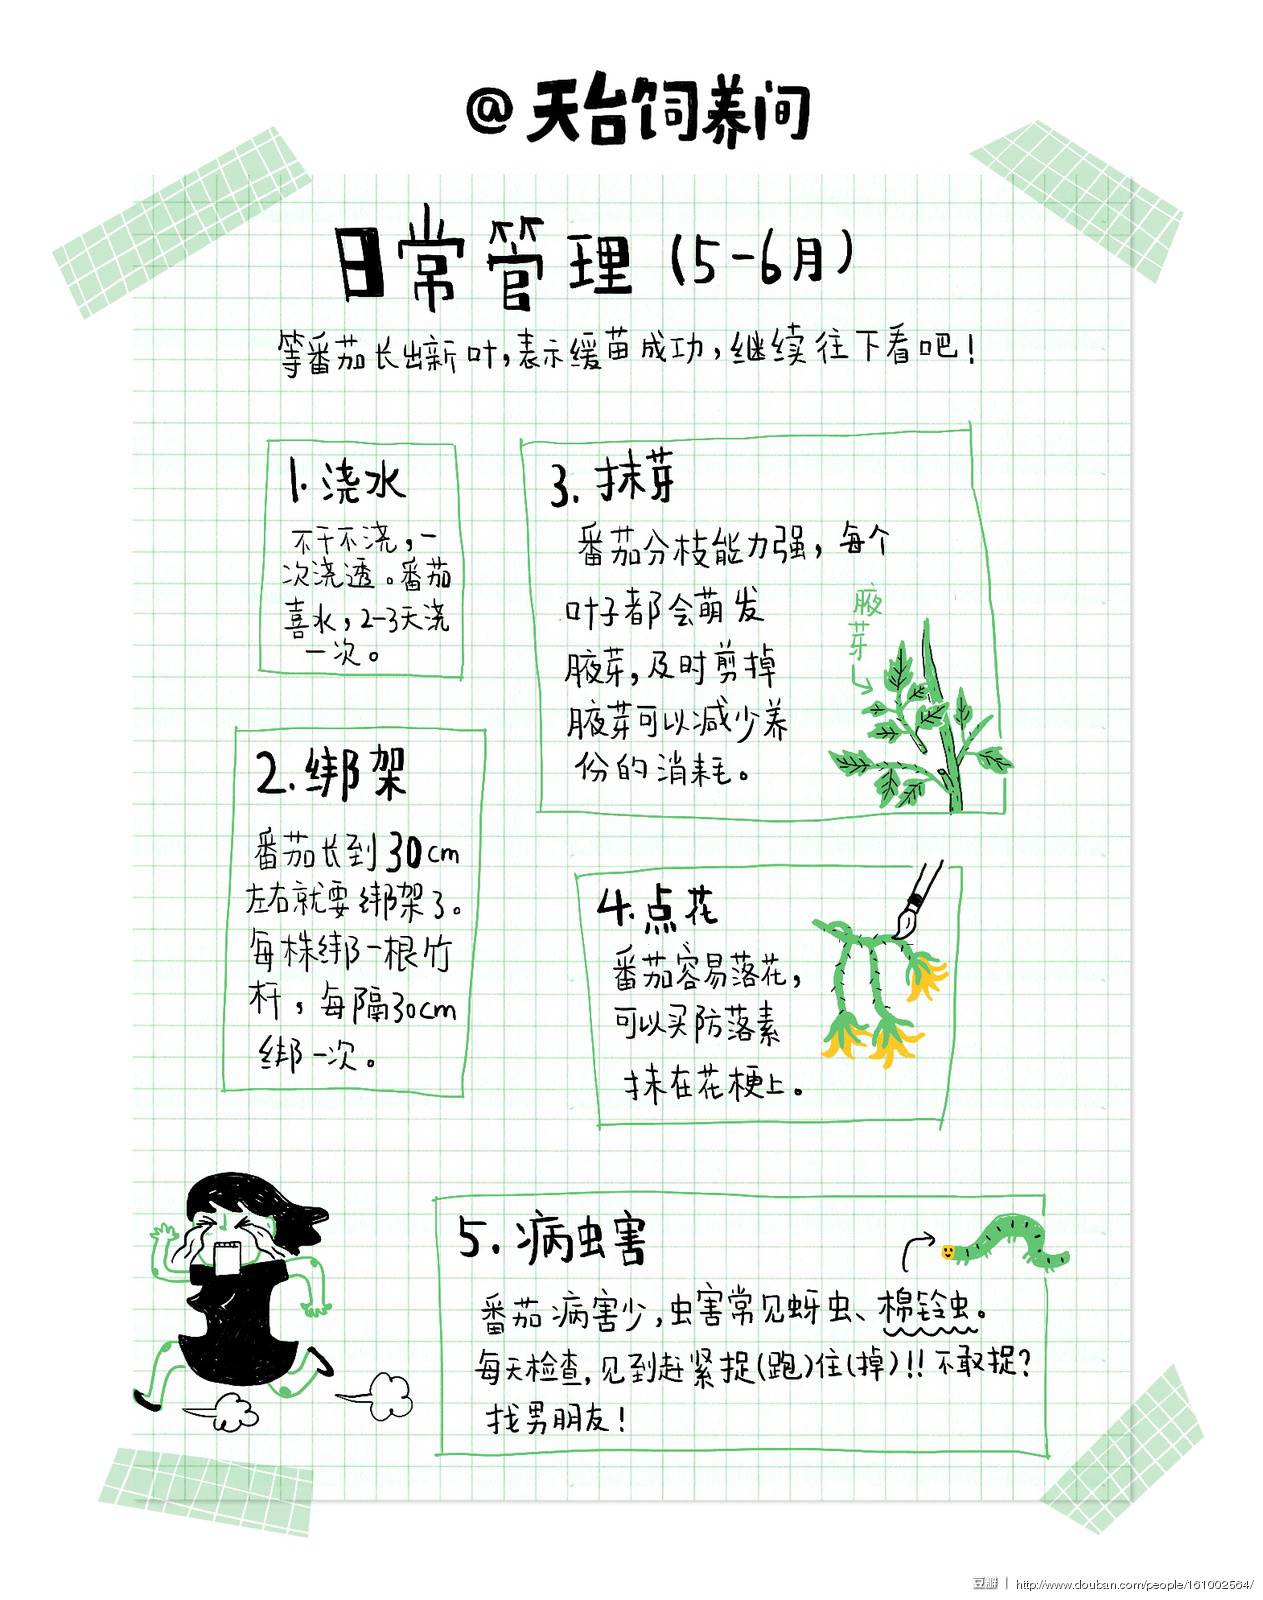 @天台饲养间
日常管理(5-6月)
等番茄长出新叶,表示缓苗成功,继续往下看吧!
1.浇水
不干不浇,一
次浇透。番茄
喜水,2-3天浇
一次。
2.绑架
番茄长到30cm
左右就要绑架了。
每株绑一根竹
杆,每隔30cm
绑一次。
3.抹芽
番茄分枝能力强,每个
叶子都会萌发
腋芽,及时剪掉
腋芽可以减少养
份的消耗。
腋芽
4.点花
番茄容易落花,
可以买防落素
抹在花梗上。
5.病虫害
番茄病害少,虫害常见蚜虫、棉铃虫。
每天检查,见到赶紧捉(跑)住(掉)!!不敢捉?
找男朋友!
豆瓣 | http://www.douban.com/people/161002564/